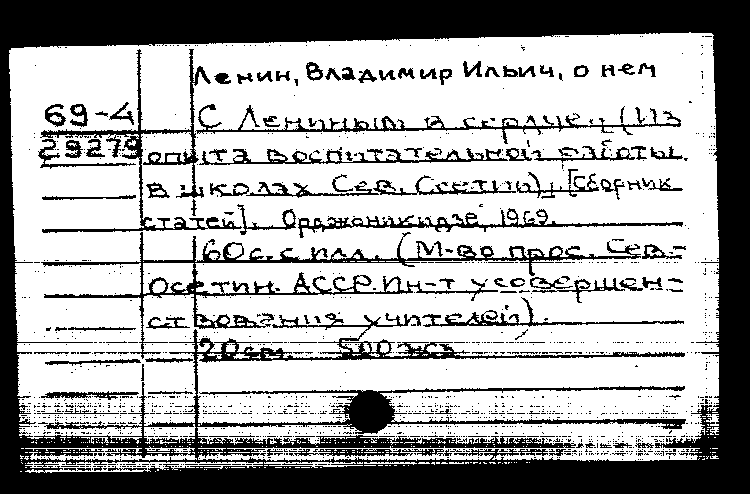 Ленин, Владимир Ильич, о нем
69-4 С Лениным в сердце. (Из
29279 опыта воспитательной работы
в школах Сев. Осетии). [Сборник
статей]. Орджоникидзе, 1969.
60 с. с илл. (М-во прос. Сев.-
Осетин. АССР. Ин-т усовершен-
ствования учителей).
20 см. 500 экз.